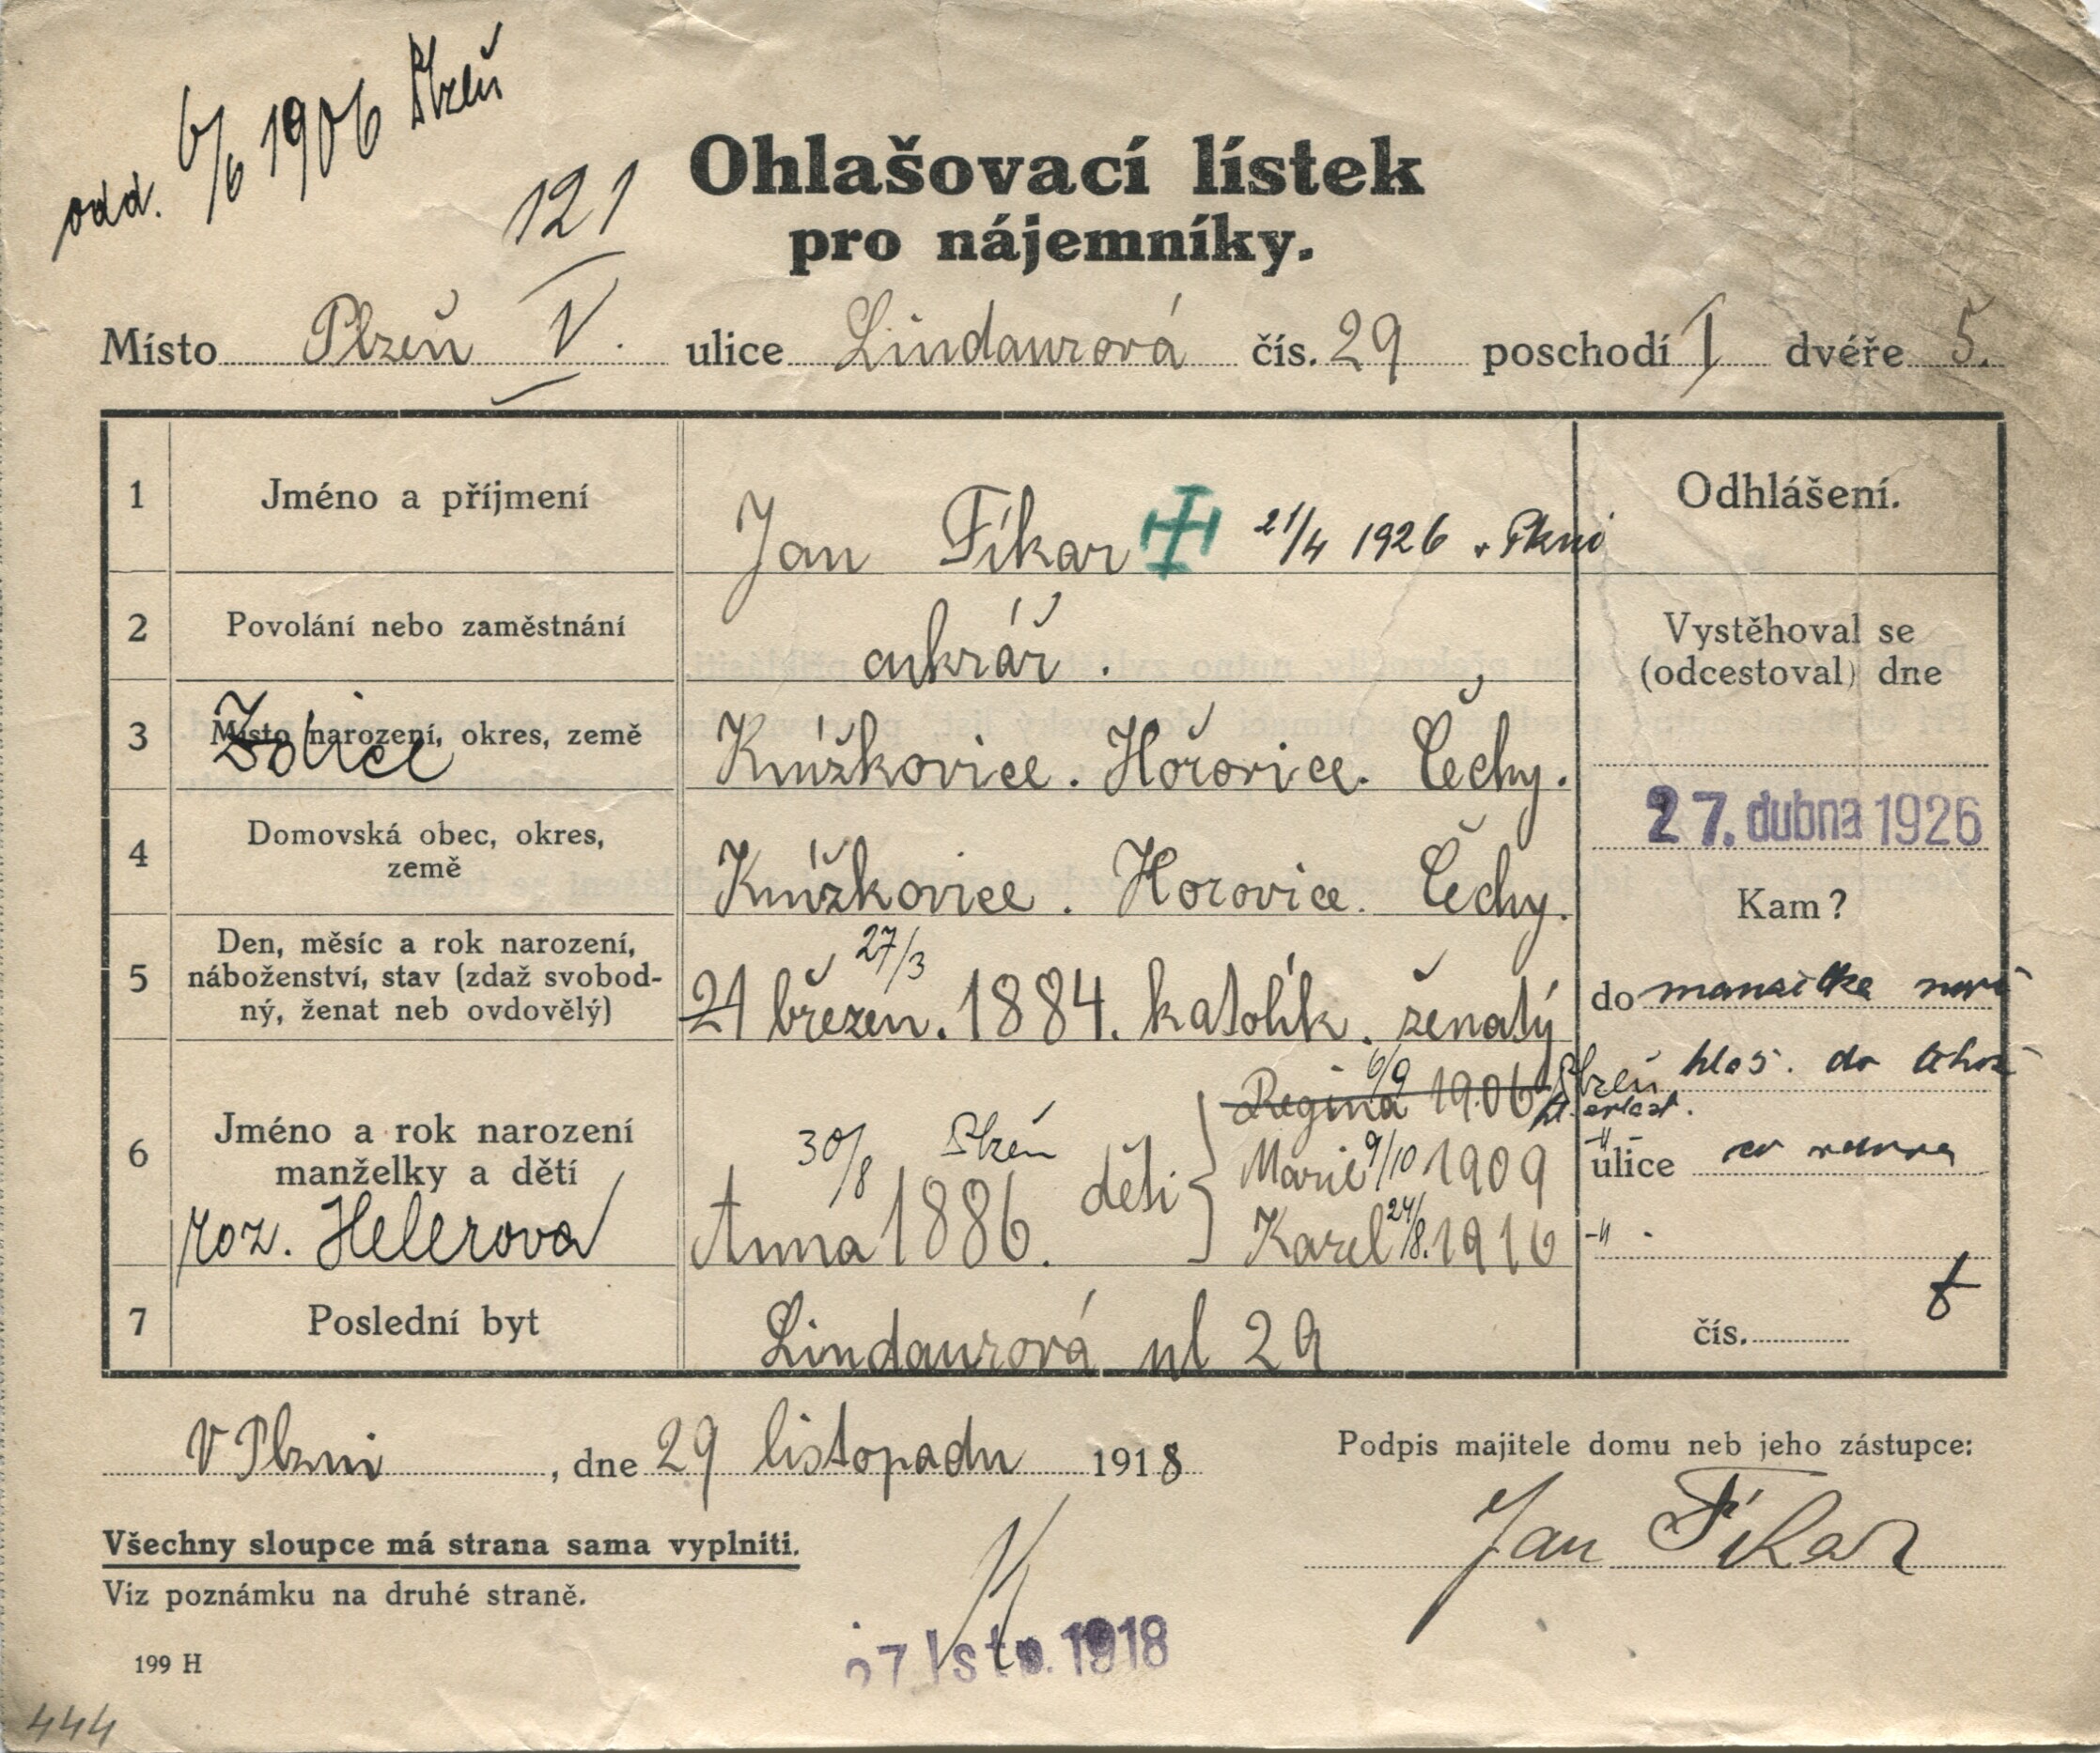 odd. 6/6 1906 Plzeň
121
Ohlašovací lístek
pro nájemníky.
Místo Plzeň V. ulice Lindaurová čís. 29 poschodí I dvéře 5.
1 Jméno a příjmení Jan Fíkar 21/4 1926 v Plzni
2 Povolání nebo zaměstnání cukrář.
3 Místo narození, okres, země Knížkovice. Hořovice. Čechy.
4 Domovská obec, okres, země Knížkovice. Horovice. Čechy.
27/3
5 Den, měsíc a rok narození, náboženství, stav (zdaž svobodný, ženat neb ovdovělý) 21 březen. 1884. katolík. ženatý
6 Jméno a rok narození manželky a dětí
roz. Helerova
30/8 Plzeň
Anna 1886. děti
Regina 6/9 1906 Plzeň
Marie 9/10 1909 -"-
Karel 24/8. 1916 -"-
7 Poslední byt Lindaurová ul 29
Odhlášení.
Vystěhoval se
(odcestoval) dne
27. dubna 1926
Kam?
do manželka nyní
hlás. do
ulice
čís.
V Plzni, dne 29 listopadu 1918
Podpis majitele domu neb jeho zástupce:
Jan Fíkar
Všechny sloupce má strana sama vyplniti.
Viz poznámku na druhé straně.
1918
199 H
444